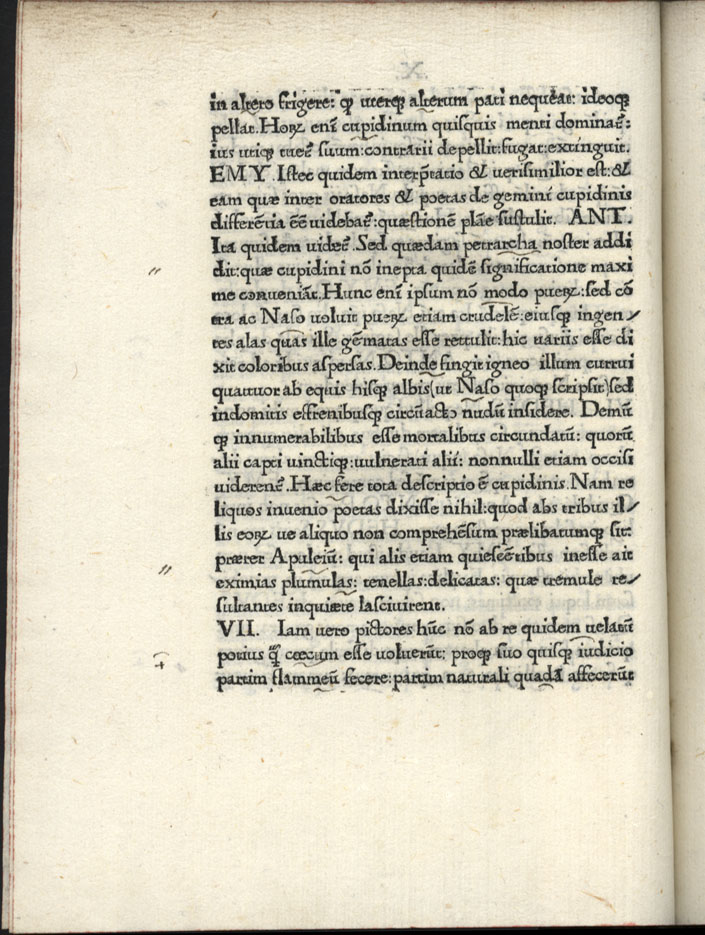 in altero frigere: ꝙ uterqꝫ alterum pati nequeat: ideoqꝫ
pellat. Hoꝝ eni᷒ cupidinum quisquis menti dominat᷒:
ius utiqꝫ tuet᷒ suum: contrarii depellit: fugat: extinguit.
EMY. Istec quidem interp̄tatio & uerisimilior est: &
eam quæ inter oratores & poetas de gemini cupidinis
differētia ēē uidebat᷒: quæstionē plāe sustulit. ANT.
Ita quidem uidet᷒. Sed quædam petrarcha noster addi
dit: quæ cupidini nō inepta quidē significatione maxi
me conueniāt. Hunc enī ipsum nō modo pueꝝ: sed cō
tra ac Naso uoluit pueꝝ etiam crudelē: eiusqꝫ ingen⸗
tes alas quas ille gēmatas esse rettulit: hic uariis esse di
xit coloribus aspersas. Deinde fingit igneo illum currui
quattuor ab equis hisqꝫ albis (ut Naso quoqꝫ scripsit) sed
indomitis effrenibusqꝫ circūactꝫ nudū insidere. Demū
ꝙ innumerabilibus esse mortalibus circundatū: quorū
alii capti uinctiqꝫ: uulnerati alii: nonnulli etiam occisi
uiderent᷒. Hæc fere tota descriptio ē cupidinis. Nam re
liquos inuenio poetas dixisse nihil: quod abs tribus il⸗
lis eoꝝ ue aliquo non comprehēsum prælibatumqꝫ sit:
præter Apuleiū: qui alis etiam quiescētibus inesse ait
eximias plumulas: tenellas: delicatas: quæ tremule re⸗
sultantes inquiæte lasciuirent.
VII. Iam uero pictores hūc nō ab re quidem uelatū
potius ꝙ̃ cœcum esse uoluerūt: proqꝫ suo quisqꝫ iudicio
partim flammeū fecere: partim naturali quadā affecerūt